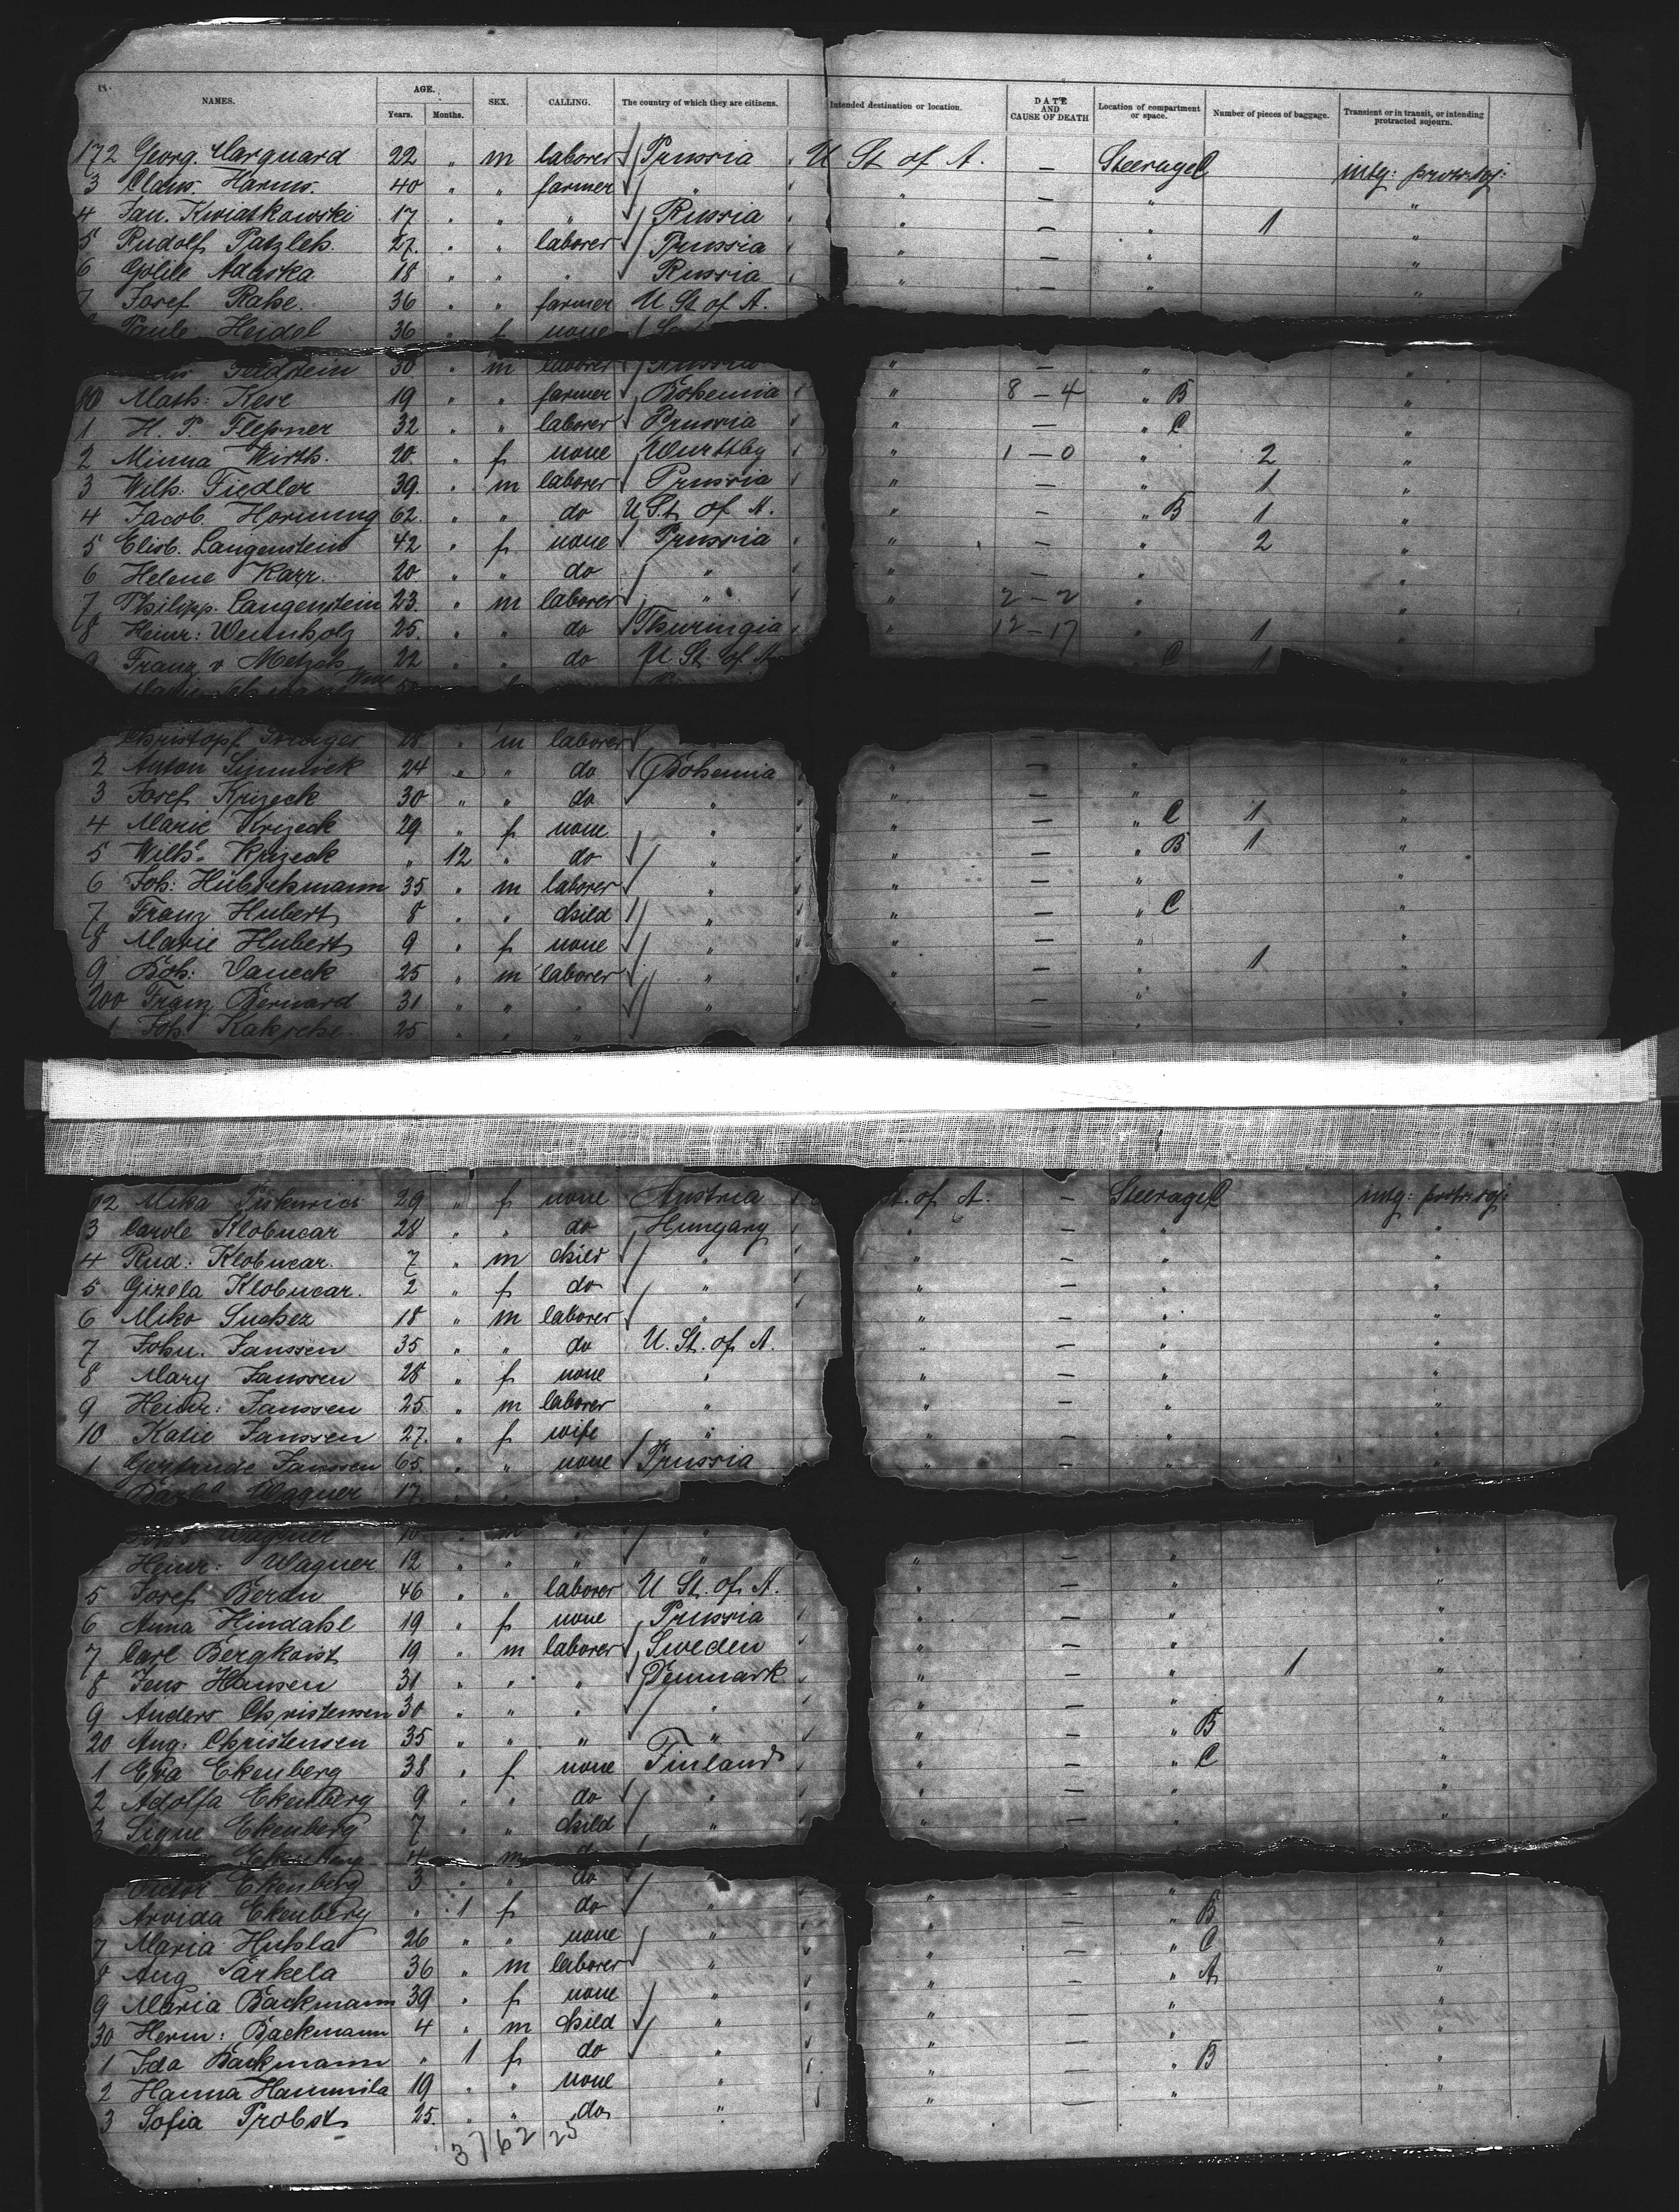 NAMES. AGE. Years. Months. SEX. CALLING. The country of which they are citizens. Intended destination or location. DATE AND CAUSE OF DEATH Location of compartment or space. Number of pieces of baggage. Transient or in transit, or intending protracted sojourn.
172 Georg. Harguard 22 " m laborer Prussia U St of A. — Steerage C intg: protr: soj:
3 Claus. Harms. 40 " " farmer " " — " "
4 Jan. Kwiatkowski 17 " " " Russia " — " 1 "
5 Rudolf Patzleh. 27. " " laborer Prussia " — " "
6 Adaska 18 " " " Russia " — " "
7 Josef Rahe. 36 " " farmer U. St. of A.
Paule Heidel 36 " f none
Feldstein 30 " m laborer " — " "
80 Math: Kese 19 " " farmer Bohemia " 8 — 4 " B "
1 H. P. Flessner 32 " " laborer Prussia " — " C "
2 Minna Wirth. 20. " f none Wurttbg " 1 — 0 " 2 "
3 Wilh: Fiedler 39. " m laborer Prussia " — " 1 "
4 Jacob Hornung 62. " " do U St. of A. " — " B 1 "
5 Elisb. Langenstein 42 " f none Prussia " — " 2 "
6 Helene Karr. 20 " " do " " — " "
7 Philipp. Langenstein 23. " m laborer " " 2 — 2 " "
8 Heinr: Wennholz 25. " " do Thuringia " 12 — 17 " 1 "
9 Franz v Metzsch 22 " " do U St. of A " C 1
Christopf 28 " m laborer —
2 Anton 24 " " do Bohemia " — " "
3 Josef Krizeck 30 " " do " " — " "
4 Marie Krizeck 29 " f none " " — " C 1 "
5 Wilh: Krizeck " 12 " do " " — " B 1 "
6 Joh: Hübschmann 35 " m laborer " " — " "
7 Franz Hubert 8 " " child " " — " C "
8 Marie Hubert 9 " f none " " — " "
9 Boh: Vaneck 25 " m laborer " " — " 1 "
200 Franz Bernard 31 " " " " " — " "
1 Joh Kaksche. 25 " " "
02 Mika 29 " f none Austria St. of A. — Steerage C intg: protr: soj:
3 Carole Klobucar 28 " " do Hungary " — " "
4 Rud: Klobucar. 7 " m child " " — " "
5 Gizela Klobucar. 2 " f do " " — " "
6 Miko Suchez 18 " m laborer " " — " "
7 John. Janssen 35 " " do U. St. of A. " — " "
8 Mary Janssen 28 " f none " " — " "
9 Heinr: Janssen 25 " m laborer " " — " "
10 Katie Janssen 27. " f wife " " — " "
1 Gertrude Janssen 65. " " none Prussia " — " "
Wagner 17. " "
Wagner m " "
Heinr: Wagner 12 " " " " " — " "
5 Josef Berdu 46 " " laborer U St. of A. " — " "
6 Anna Hindahl 19 " f none Prussia " — " "
7 Carl Bergkvist 19 " m laborer Sweden " — " "
8 Jens Hansen 31 " " " Denmark " — " 1 "
9 Anders Christensen 30 " " " " " — " "
20 Aug: Christensen 35 " " " " " — " B "
1 Eva Ekenberg 38 " f none Finland " — " C "
2 Adolfa Ekenberg 9 " " do " " — " "
3 Signe Ekenberg 7 " " child " " — " "
Ekenberg 4 " m
Victor Ekenberg 3 " " do
Arvida Ekenberg " 1 f do " " — " B "
7 Maria Huhla 26 " " none " " — " C "
8 Aug Sarkela 36 " m laborer " " — " A "
9 Maria Backmann 39 " f none " " — " "
30 Herm: Backmann 4 " m child " " — " "
1 Ida Backmann " 1 f do " " — " B "
2 Hanna Hammila 19 " " none " " — " "
3 Sofia Probst 25. " " do " " —
37 62 25